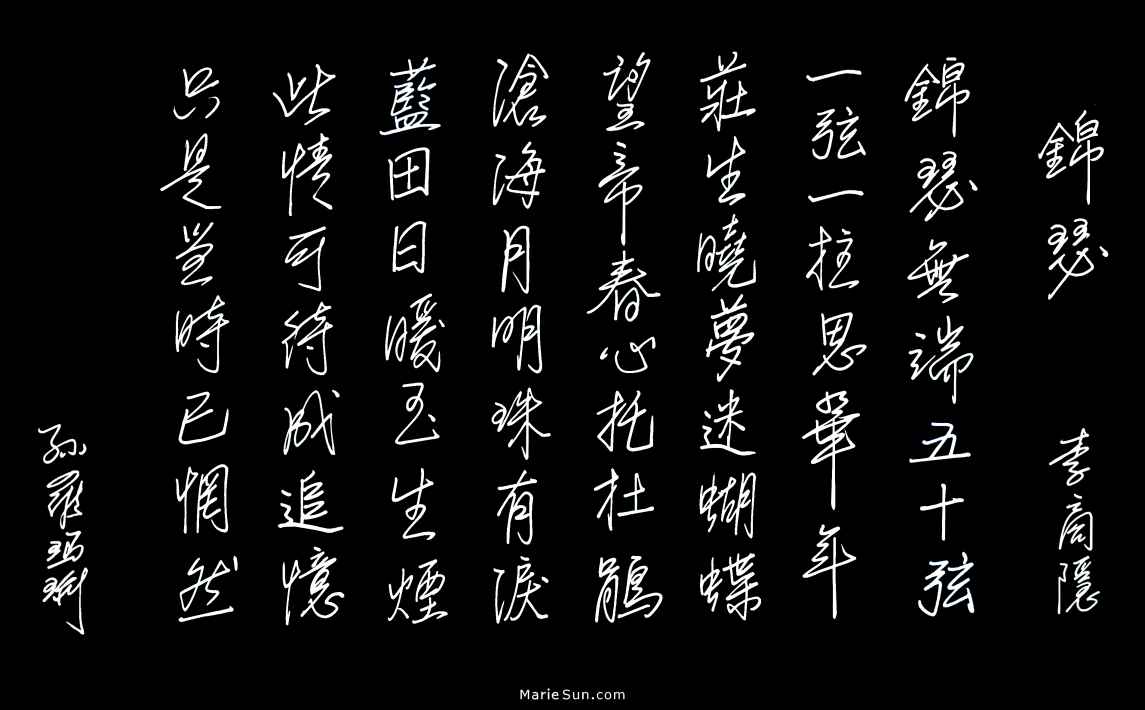 錦瑟
李商隱
錦瑟無端五十弦
一弦一柱思華年
莊生曉夢迷蝴蝶
望帝春心托杜鵑
滄海月明珠有淚
藍田日暖玉生煙
此情可待成追憶
只是當時已惘然
孫羅瑪琍
MarieSun.com